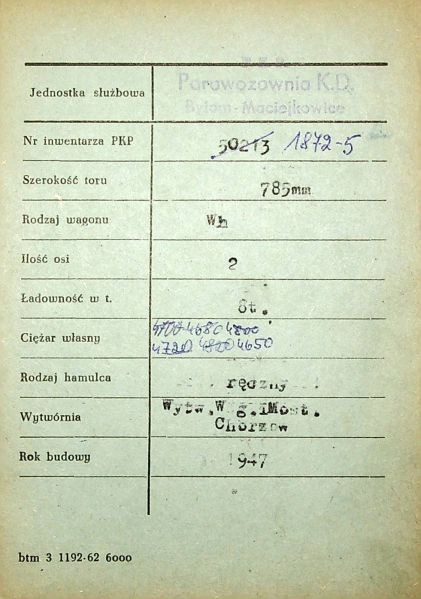 P.K.P.
Jednostka służbowa Parowozownia K.D.
Bytom-Maciejkowice
Nr inwentarza PKP 50213 1872-5
Szerokość toru 785mm
Rodzaj wagonu Wh
Ilość osi 2
Ładowność w t. 8t.
Ciężar własny 4700 4680 4800
4720 4800 4650
Rodzaj hamulca ręczny
Wytwórnia Wytw.Wag.iMost.
Chorzow
Rok budowy 1947
btm 3 1192-62 6000